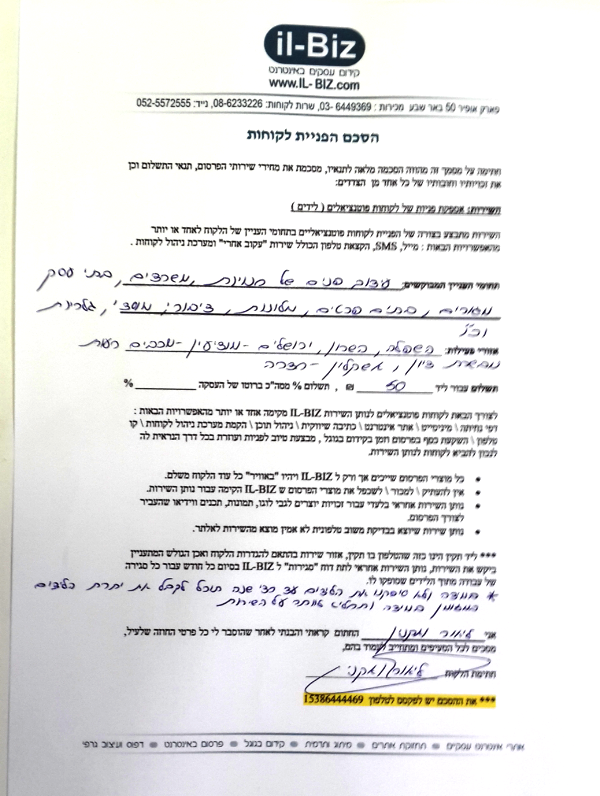 il-Biz
קידום עסקים באינטרנט
www.IL-BIZ.com
פארק אופיר 50 באר שבע מכירות : 03-6449369, שרות לקוחות: 08-6233226, נייד: 052-5572555
הסכם הפניית לקוחות
חתימה על מסמך זה מהווה הסכמה מלאה לתנאיו, מסכמת את מחירי שירותי הפרסום, תנאי התשלום וכן
את זכויותיו וחובותיו של כל אחד מן הצדדים:
השירות: אספקת פניות של לקוחות פוטנציאלים ( לידים )
השירות מתבצע בצורה של הפניית לקוחות פוטנציאליים בתחומי העניין של הלקוח לאחד או יותר
מהאפשרויות הבאות : מייל, SMS, הקצאת טלפון הכולל שירות "עקוב אחרי" ומערכת ניהול לקוחות .
תחומי העניין המבוקשים: עיצוב פנים של חנויות, משרדים, בתי עסק
מגורים, בתים פרטים, מלונות, ציבורי, מוסדי, גלריות
וכו'
אזורי פעילות: השפלה, השרון, ירושלים - מודיעין - מכבים רעות
ציון, אשקלון - חדרה
תשלום עבור ליד 50 ₪ , תשלום % מסה"כ ברוטו של העסקה %
לצורך הבאת לקוחות פוטנציאלים לנותן השירות IL-BIZ מקימה אחד או יותר מהאפשרויות הבאות :
דפי נחיתה \ מיניסייט \ אתר אינטרנט \ כתיבה שיווקית \ ניהול תוכן \ הקמת מערכת ניהול לקוחות \ קו
טלפון \ השקעת כסף בפרסום וזמן בקידום בגוגל , מבצעת טיוב לפניות ועוזרת בכל דרך הנראית לה
לנכון להביא לקוחות לנותן השירות.
• כל מוצרי הפרסום שייכים אך ורק ל IL-BIZ ויהיו "באוויר" כל עוד הלקוח משלם.
• אין להעתיק \ למכור \ לשכפל את מוצרי הפרסום ש IL-BIZ הקימה עבור נותן השירות.
• נותן השירות אחראי בלעדי עבור זכויות יוצרים לגבי לוגו, תמונות, תכנים ווידיאו שהעביר
לצורך הפרסום.
• נותן שירות שיוצא בבדיקת משוב טלפונית לא אמין מוצא מהשירות לאלתר.
*** ליד תקין הינו כזה שהטלפון בו תקין, אזור שירות בהתאם להגדרות הלקוח ואכן הגולש המתעניין
ביקש את השירות, נותן השירות אחראי לתת דוח "סגירות" ל IL-BIZ בסיום כל חודש עבור כל סגירה
של עבודה מתוך הלידים שסופקו לו.
* במידה ולא סיפקנו את הלידים עד חצי שנה תוכל לקבל את יתרת הלידים
במזומן במידה ותחליט לוותר על השירות
אני ליאור וקנין החתום קראתי והבנתי לאחר שהוסבר לי כל פרטי החוזה שלעיל,
מסכים לכל הסעיפים ומתחייב לעמוד בהם,
חתימת הלקוח ליאור וקנין
*** את ההסכם יש לפקסס לטלפון 15386444469
אתרי אינטרנט עסקיים תחזוקת אתרים מיתוג ותדמית קידום בגוגל פרסום באינטרנט דפוס ועיצוב גרפי